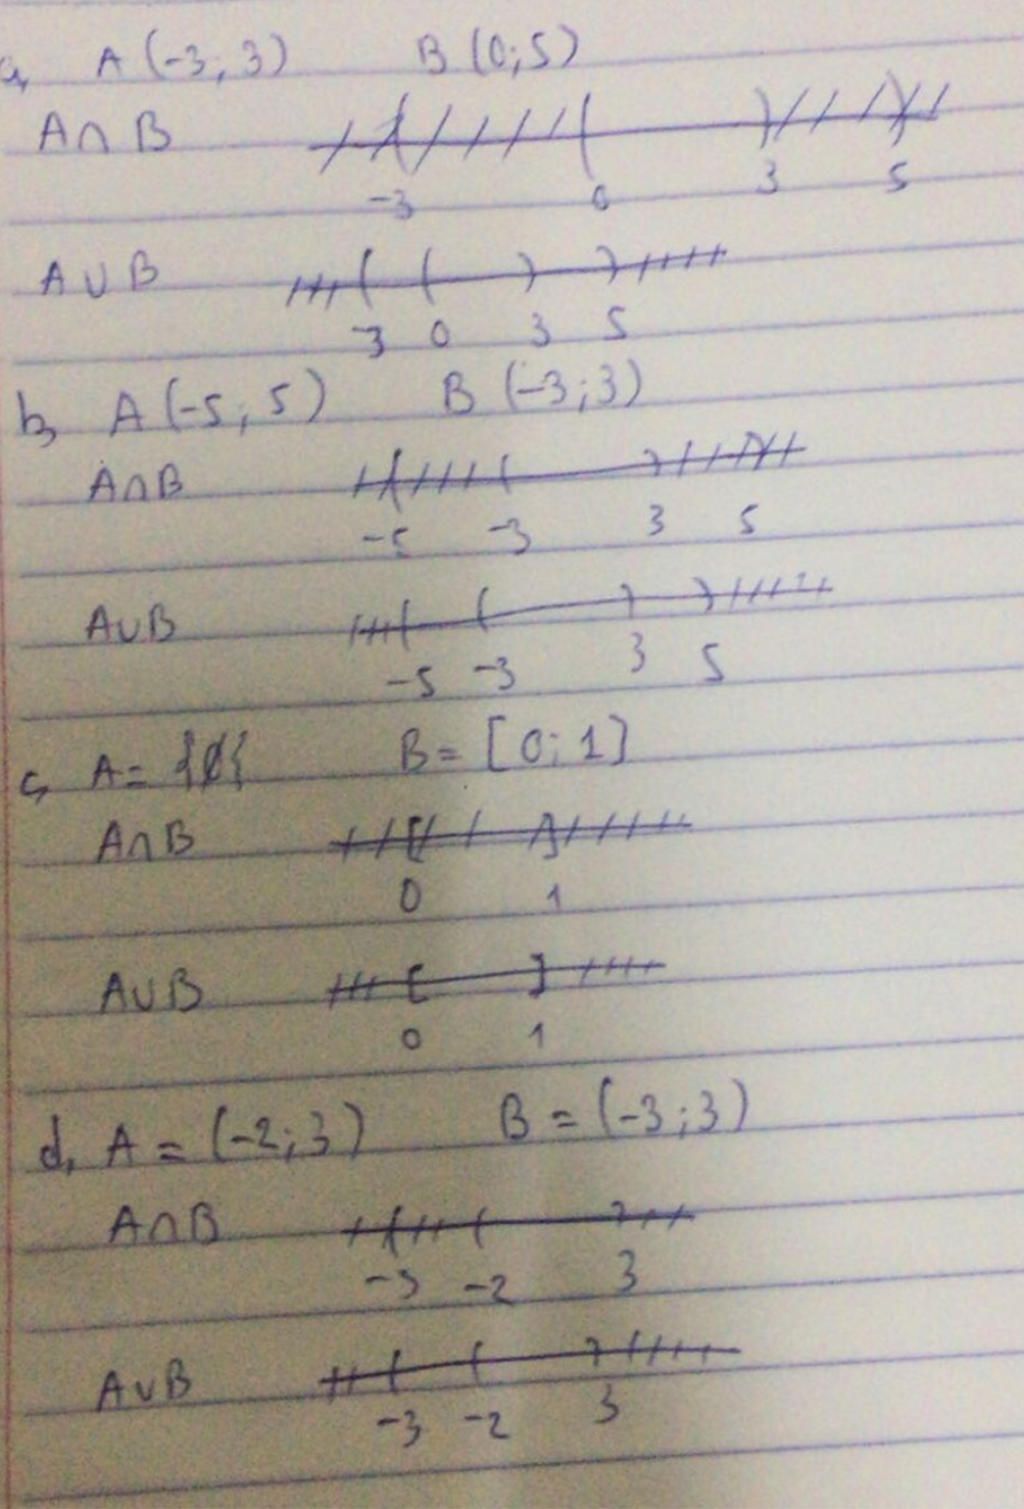 a, A (-3; 3) B (0; 5)
A ∩ B
-3 0 3 5
A ∪ B
-3 0 3 5
b, A (-5; 5) B (-3; 3)
A∩B
-5 -3 3 5
A∪B
-5 -3 3 5
c, A = {∅} B = [0; 1]
A∩B
0 1
A∪B
0 1
d, A = (-2; 3) B = (-3; 3)
A∩B
-3 -2 3
A∪B
-3 -2 3